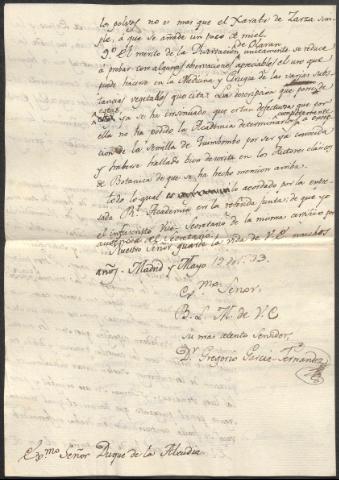 los polvos no es mas que el Xarabe de Zarza sim-
ple, à que se añade un poco de miel.
9.º El merito de la Disertacion de Olaran unicamente se reduce
à probar con algunas observaciones apreciables el uso que
puede hacerse en la Medicina y de las varias subs-
tancias vegetales que cita. La descripcion que pone de
estas ya se ha insinuado, que es tan defectuosa que por
ella no ha podido la Academia determinar completamente à excep-
cion de la semilla de Yumbombo por ser ya conocida
y haberse hallado bien descrita en los Autores clasicos
de Botanica de que se ha hecho mencion arriba.
Todo lo qual es lo acordado por la expre-
sada R.l Academia en la referida junta; de que yo
el infrascrito Vice-Secretario de la misma certifico por
ausencia del Secretario.
Nuestro Señor guarde la vida de V.E. muchos
años. Madrid y Mayo 12 de 93.
Ex.mo Señor.
B. L. M. de V.E
su mas atento servidor,
D.r Gregorio Garcia Fernandez
Ex.mo Señor Duque de la Alcudia